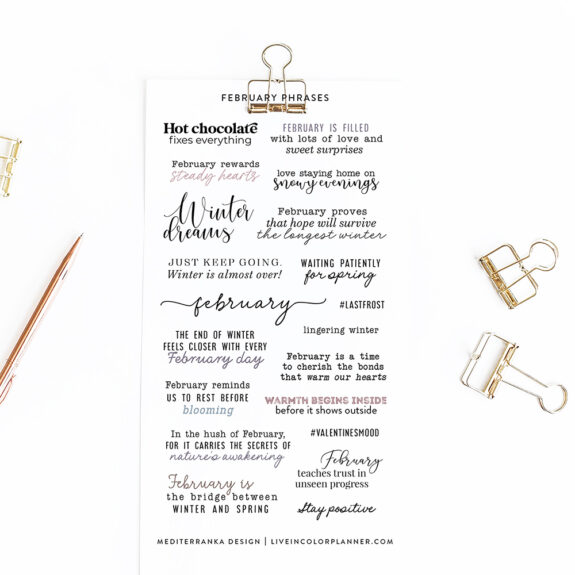 FEBRUARY PHRASES
Hot chocolate
fixes everything
FEBRUARY IS FILLED
with lots of love and
sweet surprises
February rewards
steady hearts
love staying home on
snowy evenings
Winter
dreams
February proves
that hope will survive
the longest winter
JUST KEEP GOING.
Winter is almost over!
WAITING PATIENTLY
for spring
february
#LASTFROST
lingering winter
THE END OF WINTER
FEELS CLOSER WITH EVERY
February day
February is a time
to cherish the bonds
that warm our hearts
February reminds
US TO REST BEFORE
blooming
WARMTH BEGINS INSIDE
before it shows outside
In the hush of February,
FOR IT CARRIES THE SECRETS OF
nature's awakening
#VALENTINESMOOD
February
teaches trust in
unseen progress
February is
the bridge between
WINTER AND SPRING
Stay positive
MEDITERRANKA DESIGN | LIVEINCOLORPLANNER.COM